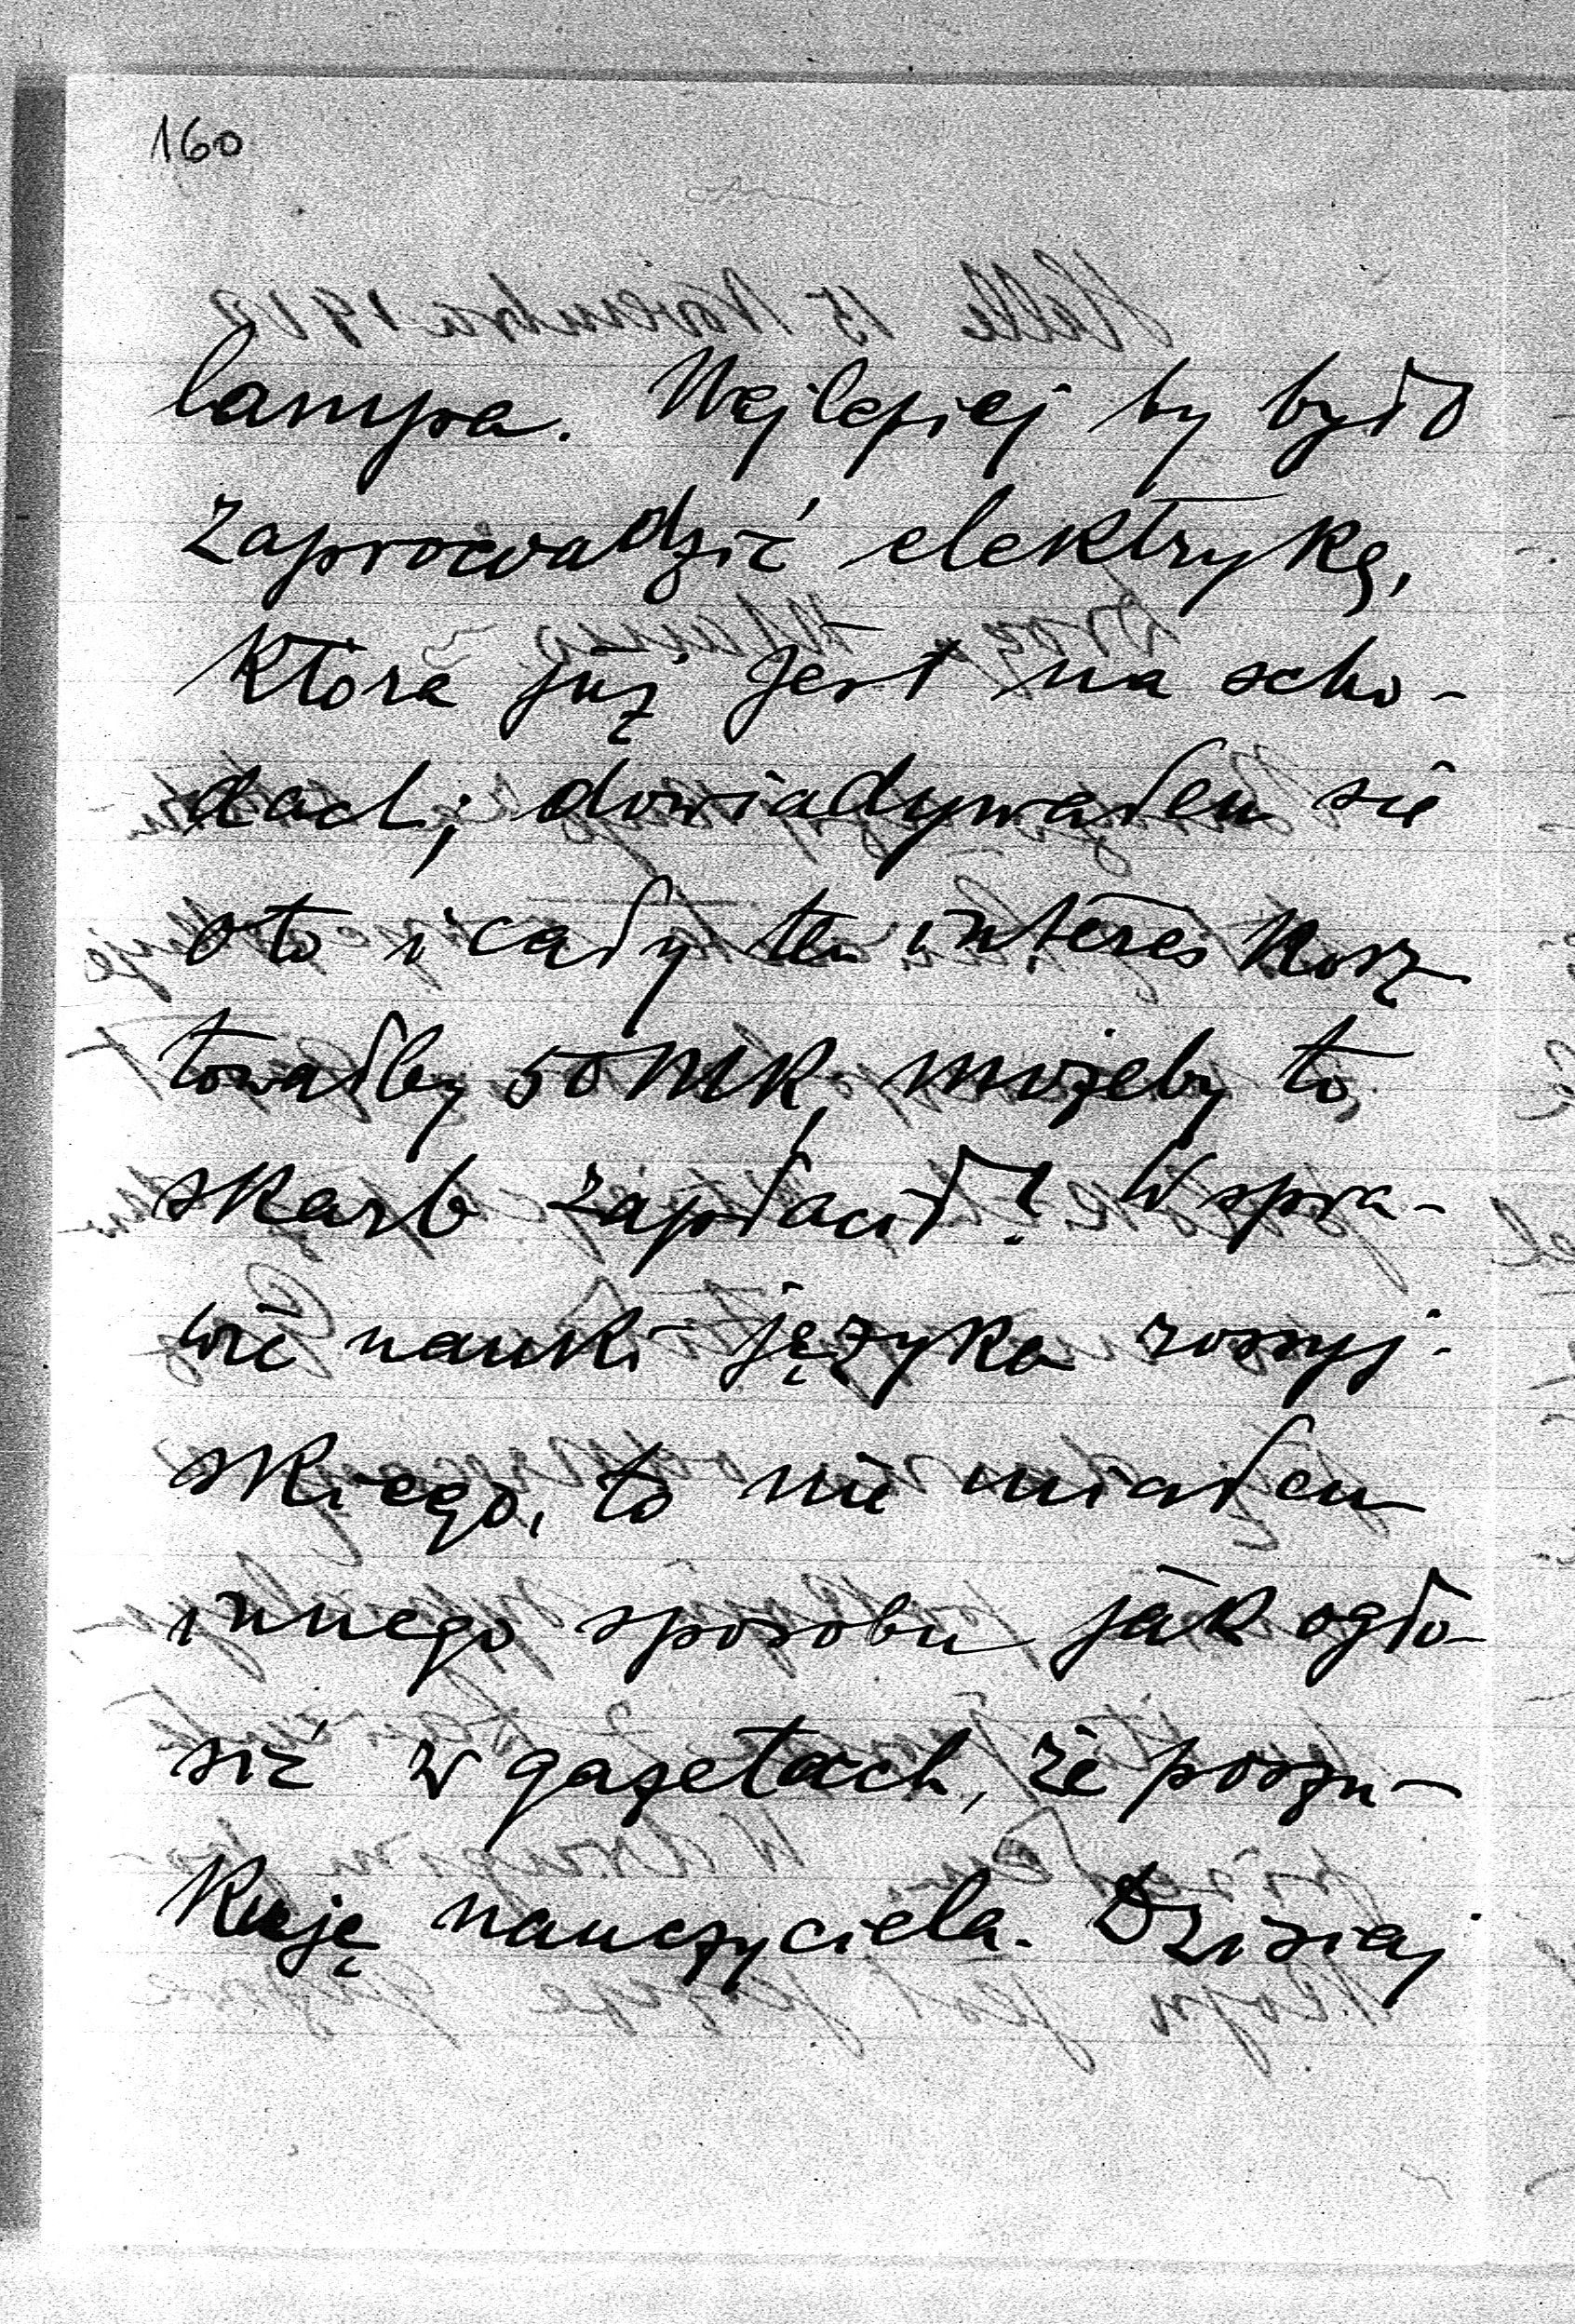 160
lampa. Najlepiej by było
zaprowadzić elektrykę,
która już jest na scho-
dach; dowiadywałem się
o to i cały ten interes kosz-
towałby 50 MK, możeby to
skarb zapłacił? W spra-
wie nauki języka rossyj-
skiego, to nie miałem
innego sposobu jak ogło-
sić w gazetach, że poszu-
kuję nauczyciela. Dzisiaj